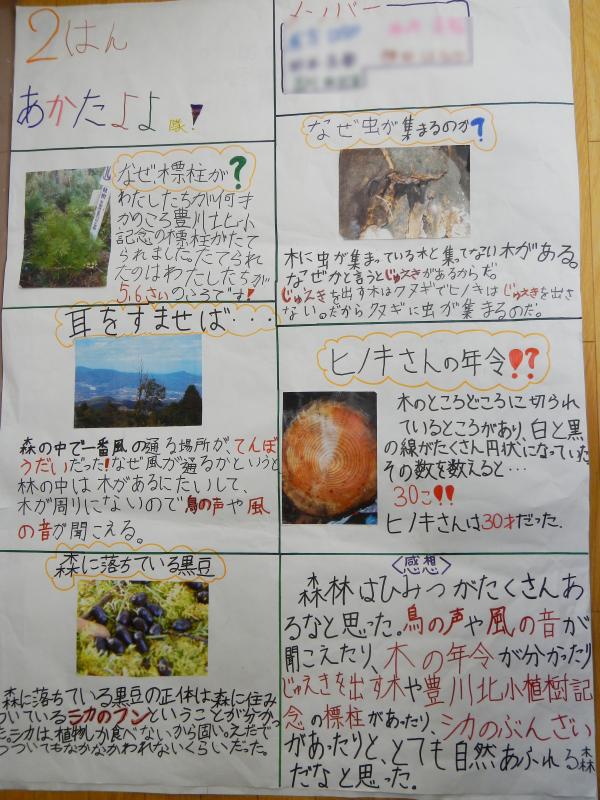 2はん
あかたよよ 隊!
メンバー
なぜ、標柱が?
わたしたちが何才
かのころ豊川北小
記念の標柱がたて
られました。たてられ
たのはわたしたちが
5,6さいのころです!
なぜ虫が集まるのか?
木に虫が集まっている木と集ってない木がある。
なぜかと言うとじゅえきがあるからだ。
じゅえきを出す木はクヌギでヒノキはじゅえきを出さ
ない。だからクヌギに虫が集まるのだ。
耳をすませば…
森の中で一番風の通る場所が、てんぼ
うだいだった!なぜ風が通るかというと
林の中は木があるにたいして、
木が周りにないので鳥の声や風
の音が聞こえる。
ヒノキさんの年令!?
木のところどころに切られ
ているところがあり、白と黒
の線がたくさん円状になっていた
その数を数えると…
30こ!!
ヒノキさんは30才だった.
森に落ちている黒豆
森に落ちている黒豆の正体は森に住み
ついているシカのフンということが分かっ
た。シカは植物しか食べないから固い。えだで
つついてもなかなかわれないくらいだった。
<感想>
森林はひみつがたくさんあ
るなと思った。鳥の声や風の音が
聞こえたり、木の年令が分かたり
じゅえきを出す木や豊川北小植樹記
念の標柱があったり、シカのぶんざい
があったりと、とても自然あふれる森
だなと思った。